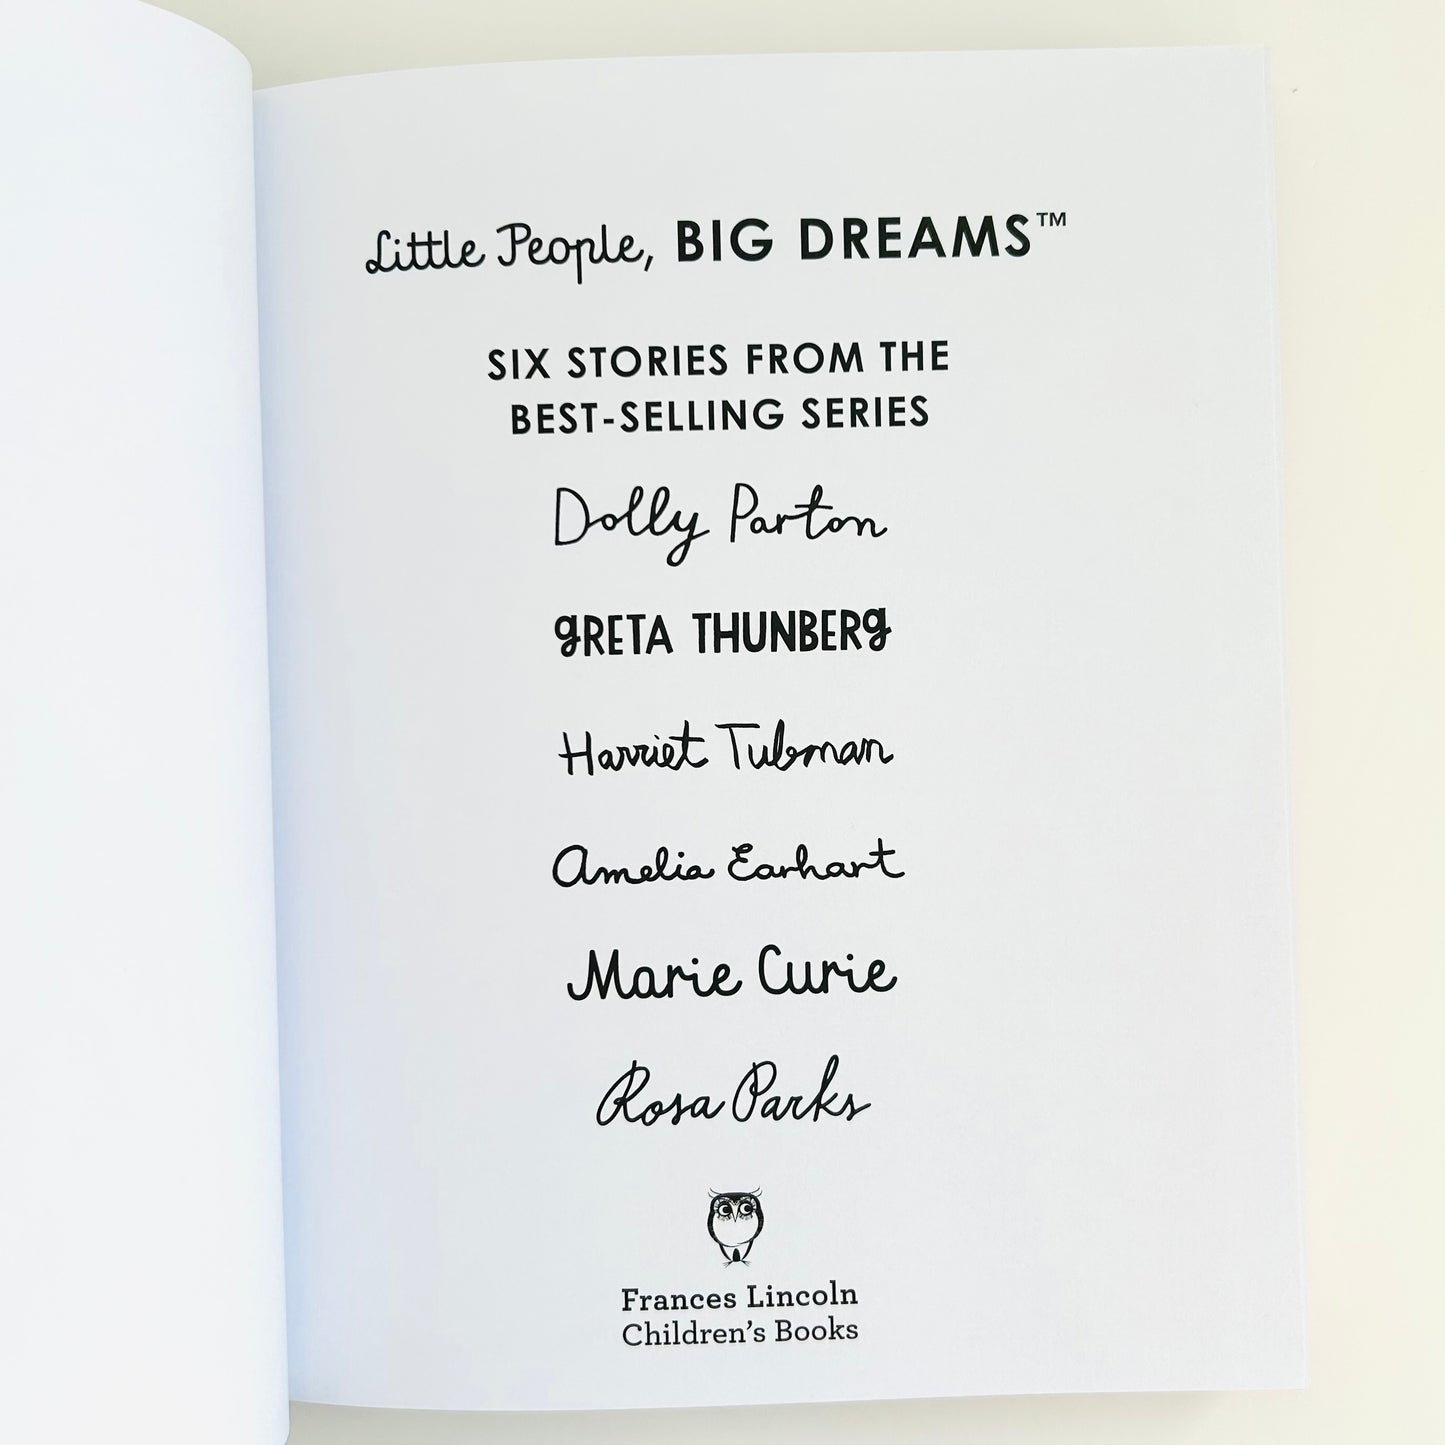 Little People, BIG DREAMS™
SIX STORIES FROM THE
BEST-SELLING SERIES
Dolly Parton
gRETA THUNBERg
Harriet Tubman
Amelia Earhart
Marie Curie
Rosa Parks
Frances Lincoln
Children's Books